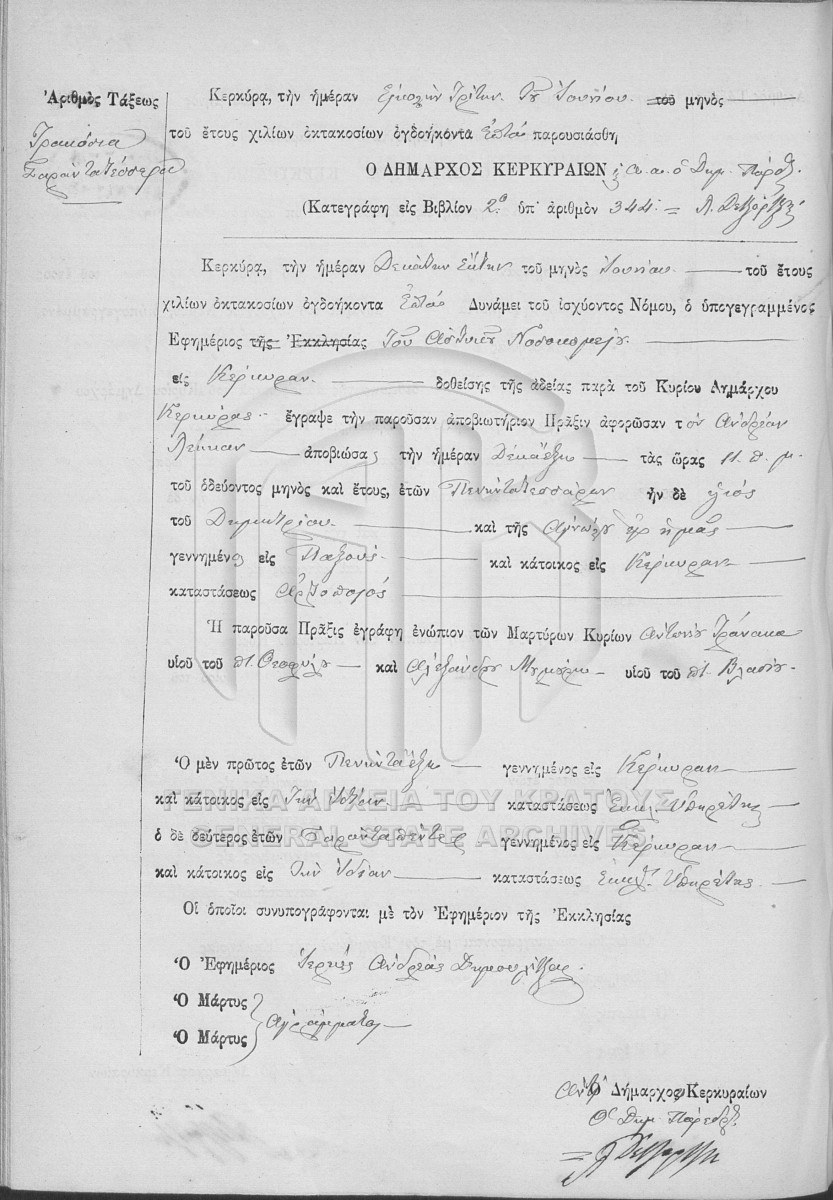 Ἀριθμὸς Τάξεως
Τριακόσια
Σαράντα τέσσερα
Κερκύρᾳ, τὴν ἡμέραν Εἰκοστὴν Τρίτην Ἰουνίου τοῦ μηνὸς
τοῦ ἔτους χιλίων ὀκτακοσίων ὀγδοήκοντα ἑπτά παρουσιάσθη
Ο ΔΗΜΑΡΧΟΣ ΚΕΡΚΥΡΑΙΩΝ ὁ Δημ. Πάρεδ.
(Κατεγράφη εἰς Βιβλίον 2ον ὑπ' ἀριθμὸν 344
Κερκύρᾳ, τὴν ἡμέραν Δεκάτην Ἕκτην τοῦ μηνὸς Ἰουνίου τοῦ ἔτους
χιλίων ὀκτακοσίων ὀγδοήκοντα ἑπτά Δυνάμει τοῦ ἰσχύοντος Νόμου, ὁ ὑπογεγραμμένος
Ἐφημέριος τῆς Ἐκκλησίας Τοῦ Νοσοκομείου
εἰς Κέρκυραν δοθείσης τῆς ἀδείας παρὰ τοῦ Κυρίου Δημάρχου
Κερκύρας ἔγραψε τὴν παροῦσαν ἀποβιωτήριον Πρᾶξιν ἀφορῶσαν τὸν Ἀνδρέαν
Λέκκαν ἀποβιώσας τὴν ἡμέραν Δεκάεξι τὰς ὥρας 11 π. μ.
τοῦ ὁδεύοντος μηνὸς καὶ ἔτους, ἐτῶν Πενῆντα τεσσάρων ἦν δὲ υἱός
τοῦ Δημητρίου καὶ τῆς Ἀγνώστου παρ' ἡμᾶς
γεννημένος εἰς Παξούς καὶ κάτοικος εἰς Κέρκυραν
καταστάσεως Ἀρτοποιός
Ἡ παροῦσα Πρᾶξις ἐγράφη ἐνώπιον τῶν Μαρτύρων Κυρίων Ἀντωνίου
υἱοῦ τοῦ π. Θεοφίλου καὶ Ἀλεξάνδρου υἱοῦ τοῦ π. Βλασίου
Ὁ μὲν πρῶτος ἐτῶν Πενῆντα ἕξι γεννημένος εἰς Κέρκυραν
καὶ κάτοικος εἰς Τὴν Ἰδίαν καταστάσεως Ἐκκλ. Ὑπηρέτης
ὁ δὲ δεύτερος ἐτῶν Σαράντα πέντε γεννημένος εἰς Κέρκυραν
καὶ κάτοικος εἰς Τὴν Ἰδίαν καταστάσεως Ἐκκλ. Ὑπηρέτης
Οἱ ὁποῖοι συνυπογράφονται μὲ τὸν Ἐφημέριον τῆς Ἐκκλησίας
Ὁ Ἐφημέριος Ἱερεὺς Ἀνδρέας
Ὁ Μάρτυς
Ὁ Μάρτυς Ἀγράμματοι
Ἀντ' Ὁ Δήμαρχος Κερκυραίων
Ὁ Δημ. Πάρεδρ.
ΓΕΝΙΚΑ ΑΡΧΕΙΑ ΤΟΥ ΚΡΑΤΟΥΣ
GENERAL STATE ARCHIVES